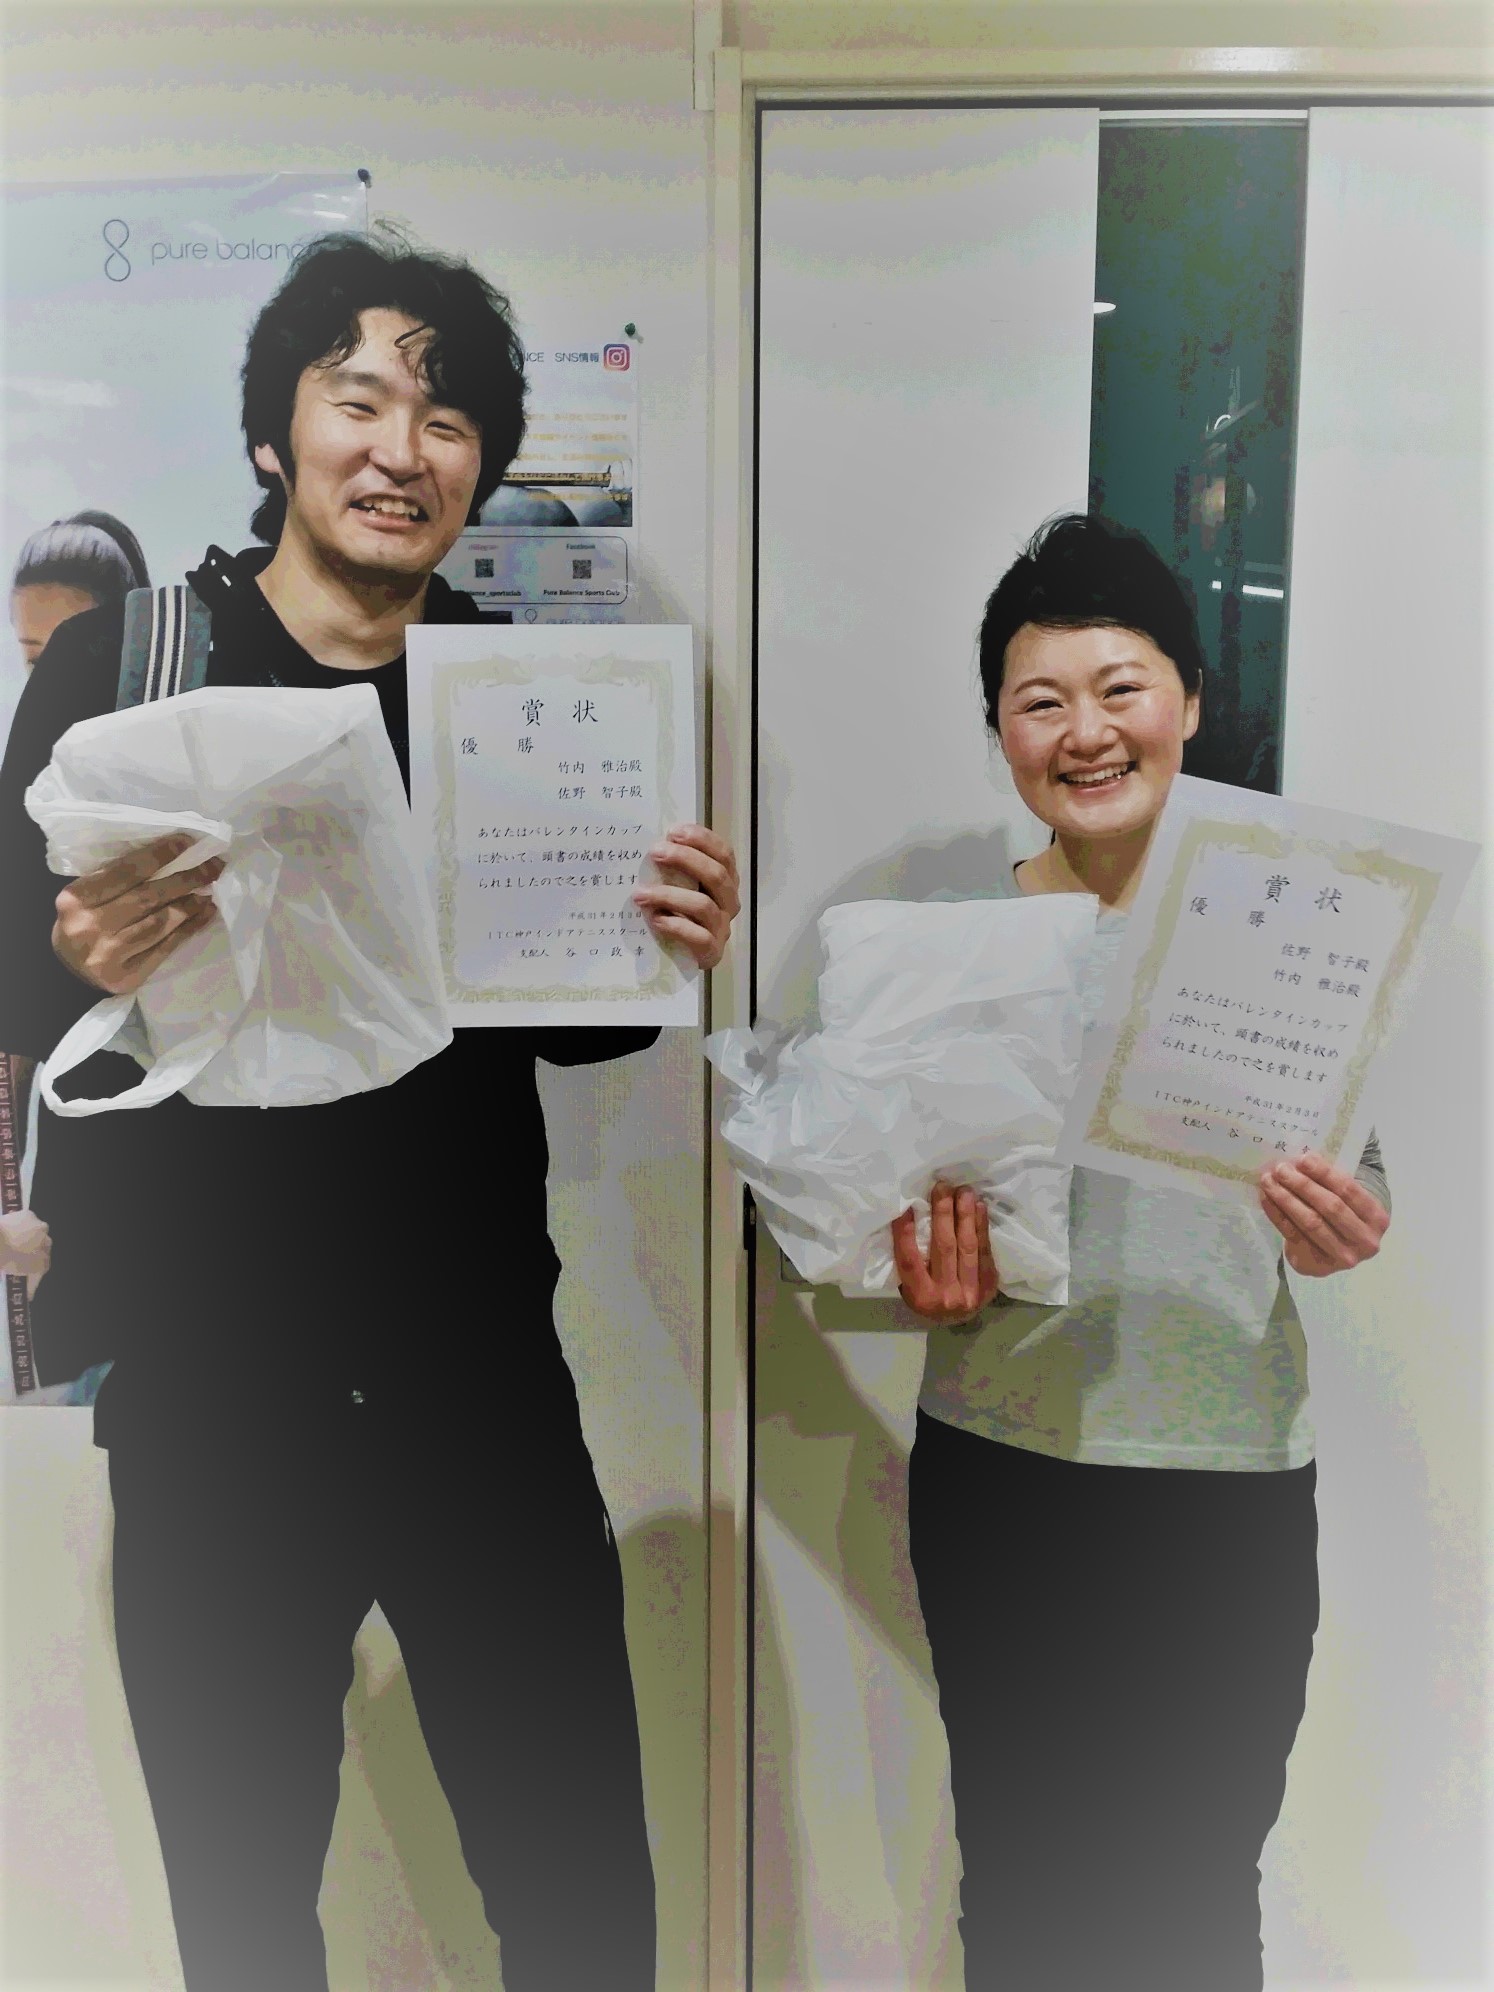 pure balanc
NCE SNS情報
Facebook
balance_sportsclub
Pure Balance Sports Club
賞 状
優 勝
竹内 雅治殿
佐野 智子殿
あなたはバレンタインカップ
に於いて、頭書の成績を収め
られましたので之を賞します
平成31年2月3日
ITC神戸インドアテニススクール
支配人 谷 口 政 幸
賞 状
優 勝
佐野 智子殿
竹内 雅治殿
あなたはバレンタインカップ
に於いて、頭書の成績を収め
られましたので之を賞します
平成31年2月3日
ITC神戸インドアテニススクール
支配人 谷 口 政 幸